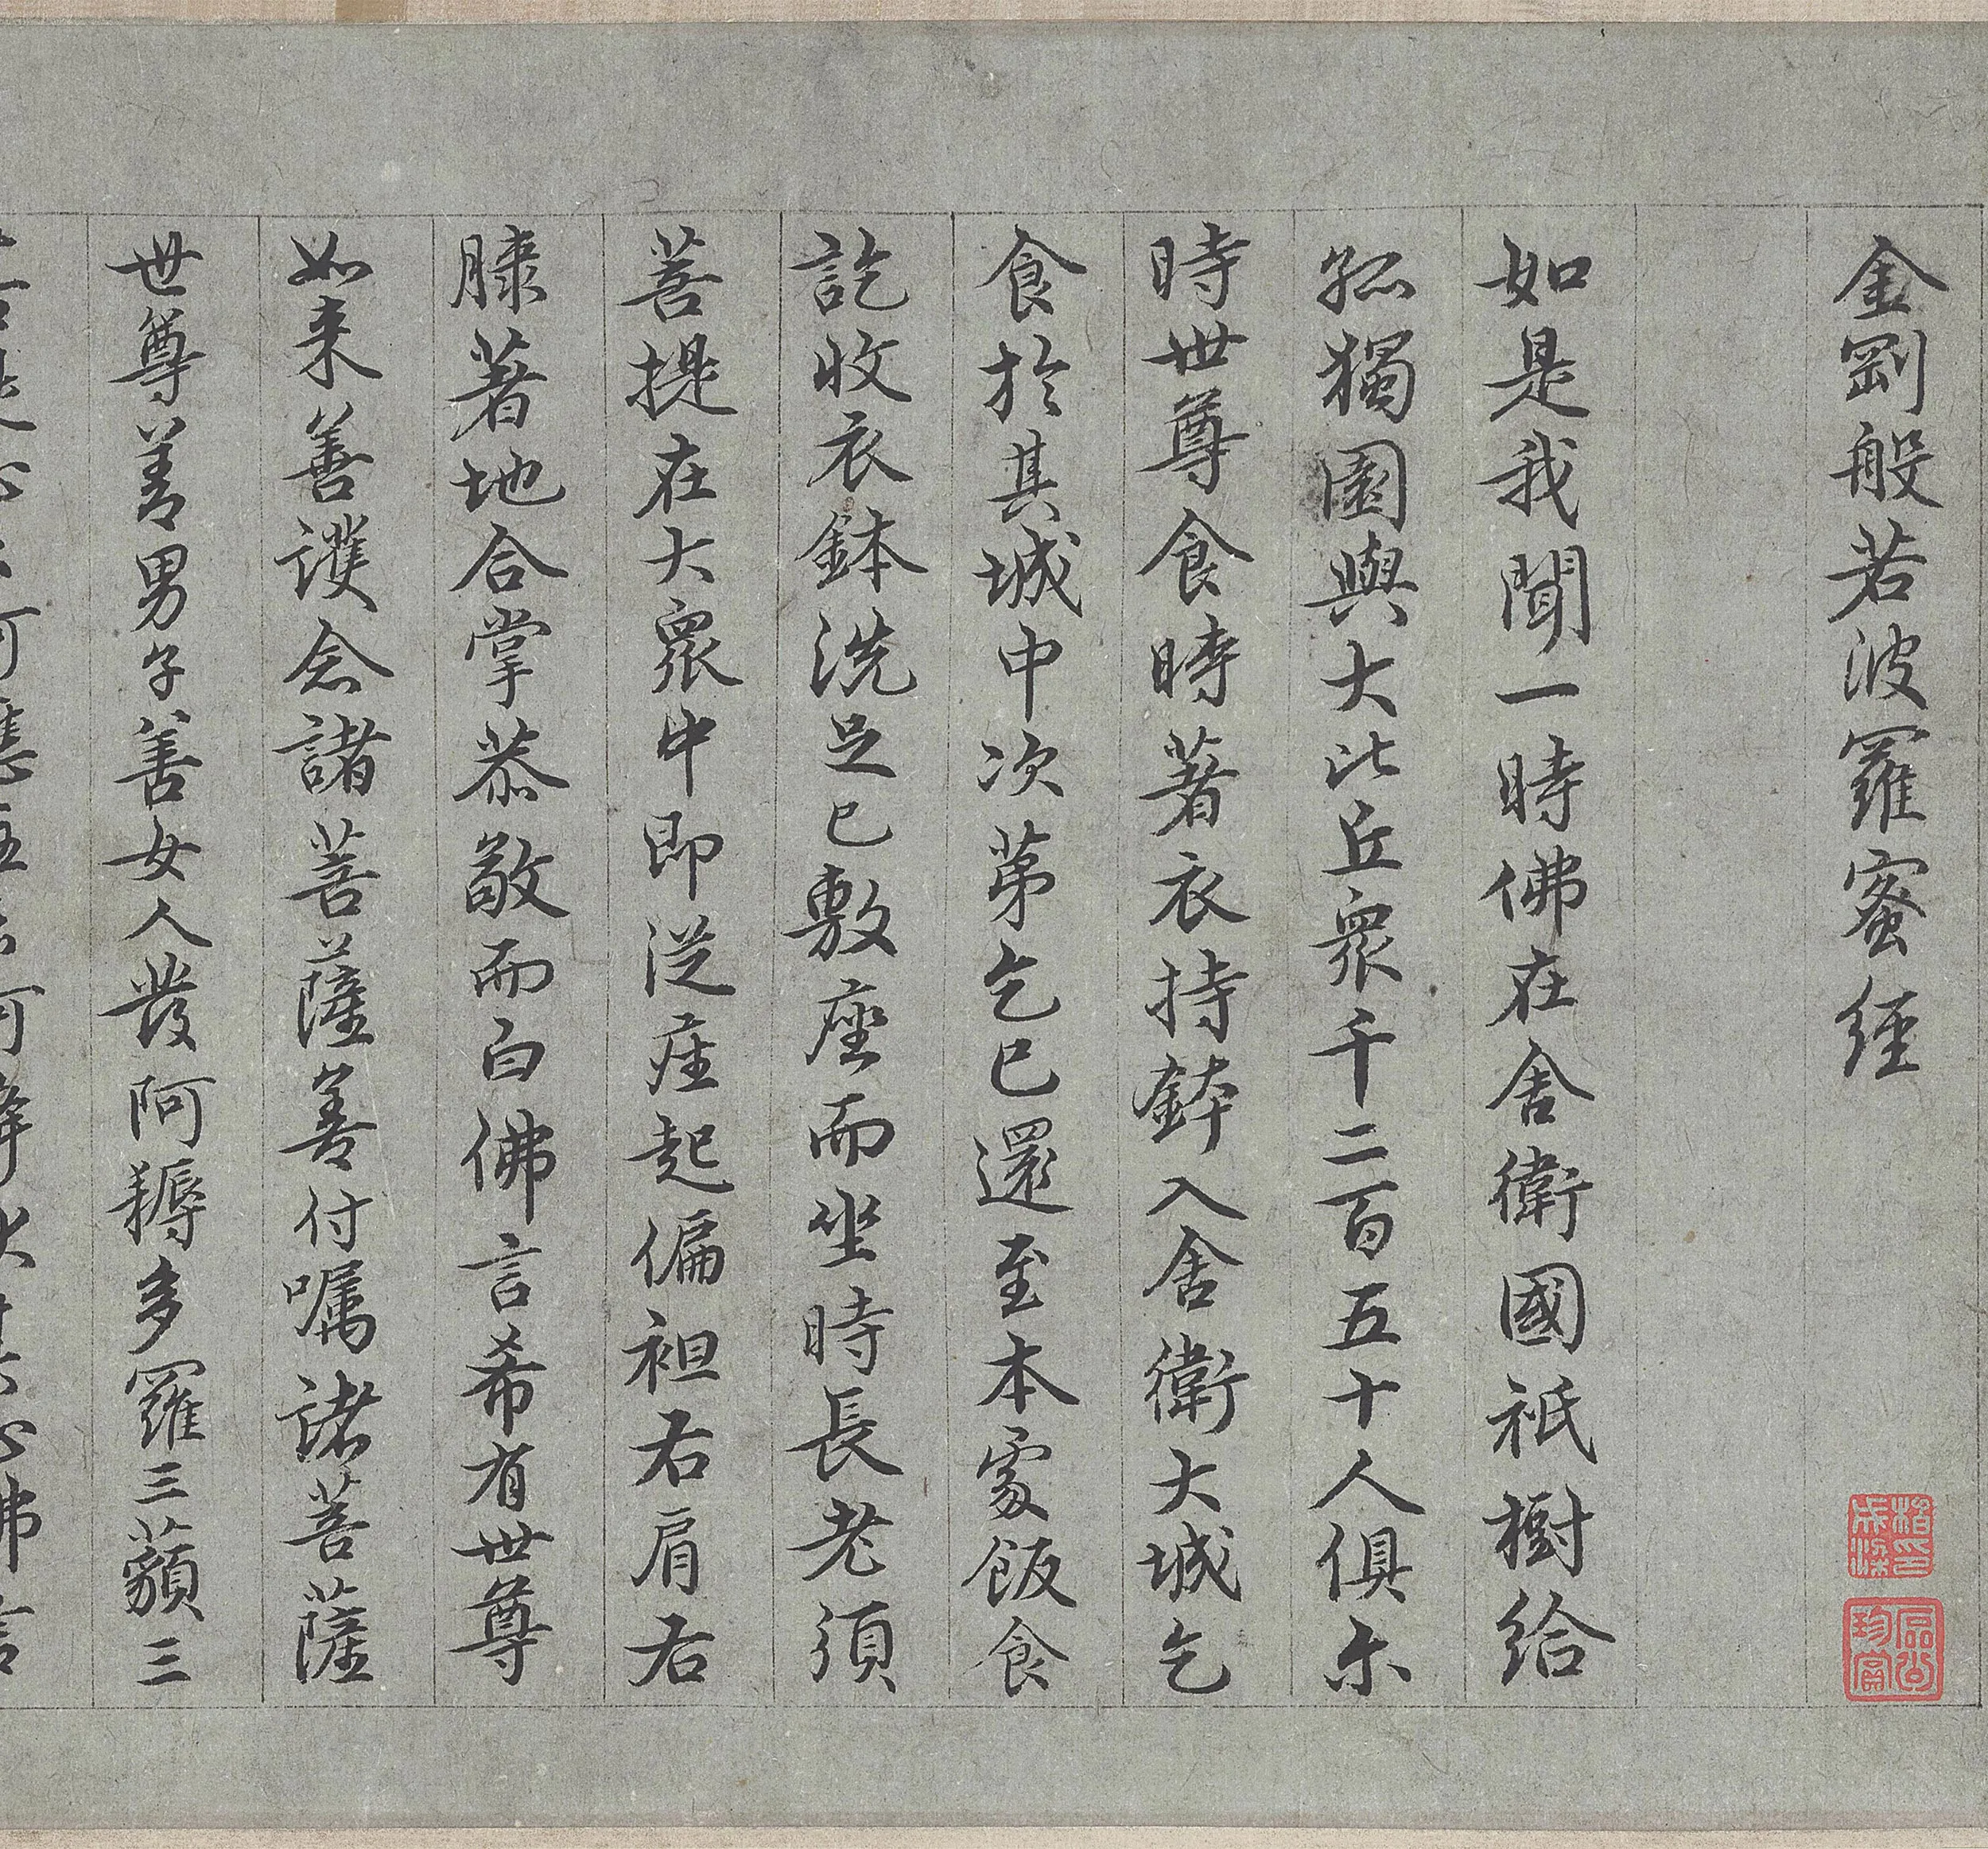 金剛般若波羅蜜經
如是我聞一時佛在舍衛國祇樹給
孤獨園與大比丘衆千二百五十人俱尒
時世尊食時著衣持鉢入舍衛大城乞
食於其城中次苐乞已還至本處飯食
訖收衣鉢洗足已敷座而坐時長老須
菩提在大衆中即從座起偏袒右肩右
膝著地合掌恭敬而白佛言希有世尊
如来善護念諸菩薩善付囑諸菩薩
世尊善男子善女人發阿耨多羅三藐三